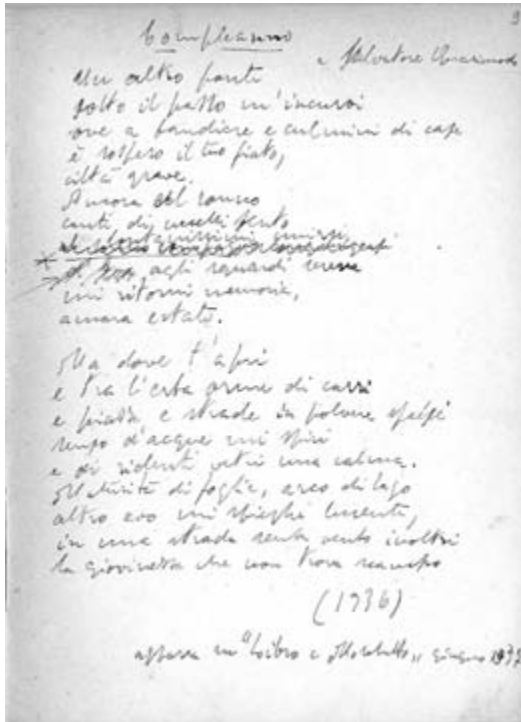 Compleanno
a Salvatore Quasimodo
Un altro ponte
sotto il passo m'incurvi
ove a bandiere e culmini di case
è sospeso il tuo fiato,
città grave.
Ancora al sonno
canti di uccelli sento
lontanissimi unirsi
agli sguardi serena
mi ritorni memoria,
amara estate.
Ma dove t'apri
e tra l'erba orme di carri
e piazze e strade in polvere spargi
senso d'acque mi spiri
e di ridenti vetri una calma.
Maturità di foglie, arco di lago
altro evo mi spieghi lucente,
in una strada senza vento inoltri
la giovinezza che non trova scampo
(1936)
in "Libro e Moschetto" giugno 1937